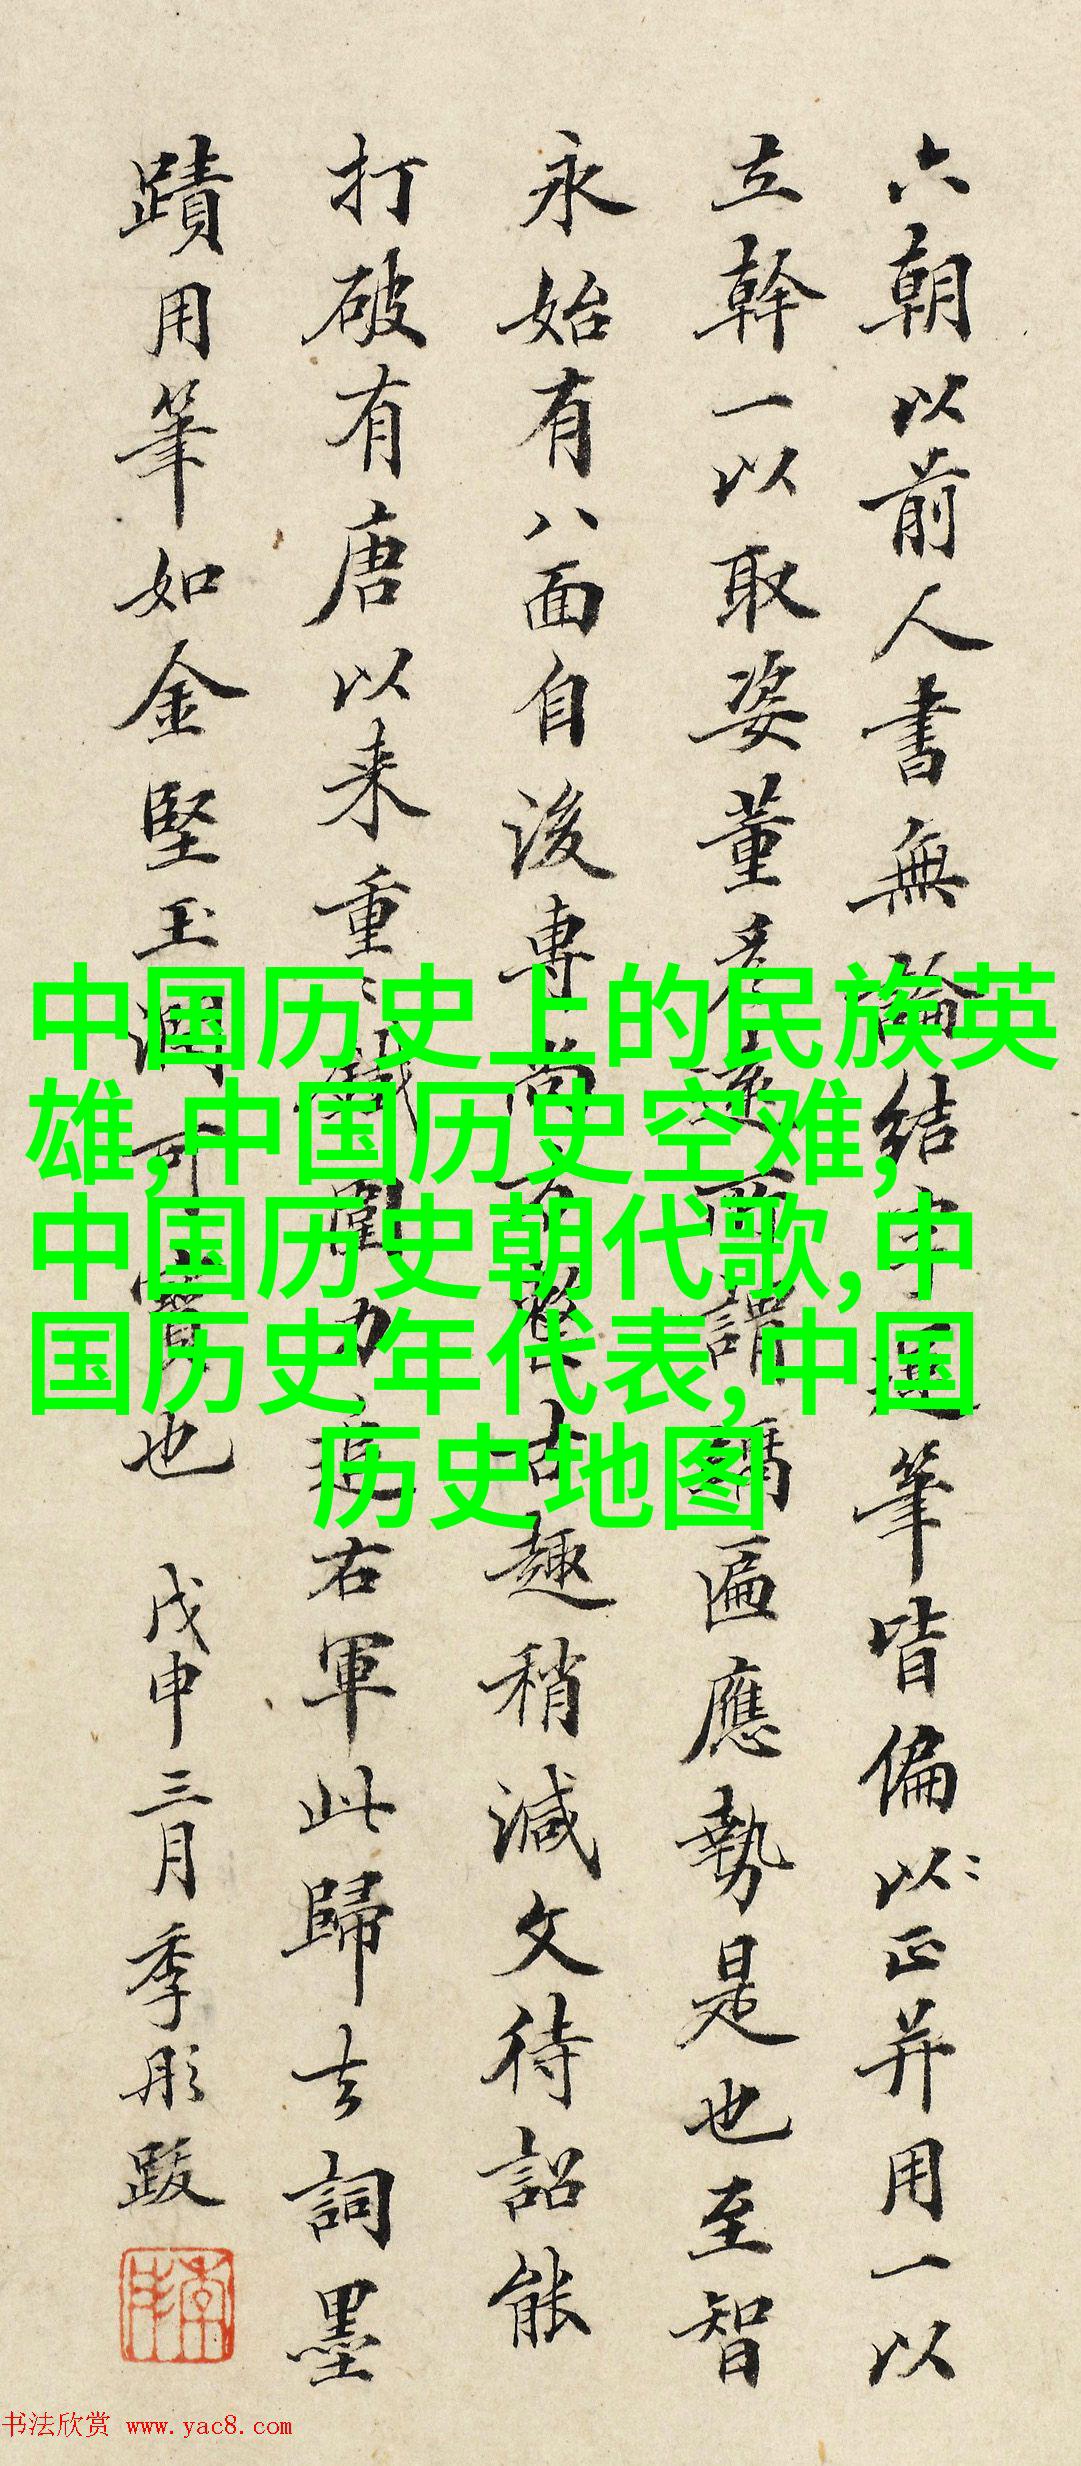 六朝以前人書無論結字運筆皆偏以正并用一以
立幹一以取姿董彥遠所謂匾應勢是也至智
永始有八面自後專尚古趣稍減文待詔能
打破有唐以來重〻鐵圍力追右軍此歸去詞墨
蹟用筆如金堅玉潤可寶也 戊申三月季彤跋
季彤
中国历史上的民族英
雄,中国历史空难,
中国历史朝代歌,中
国历史年代表,中国
历史地图
书法欣赏 www.yac8.com